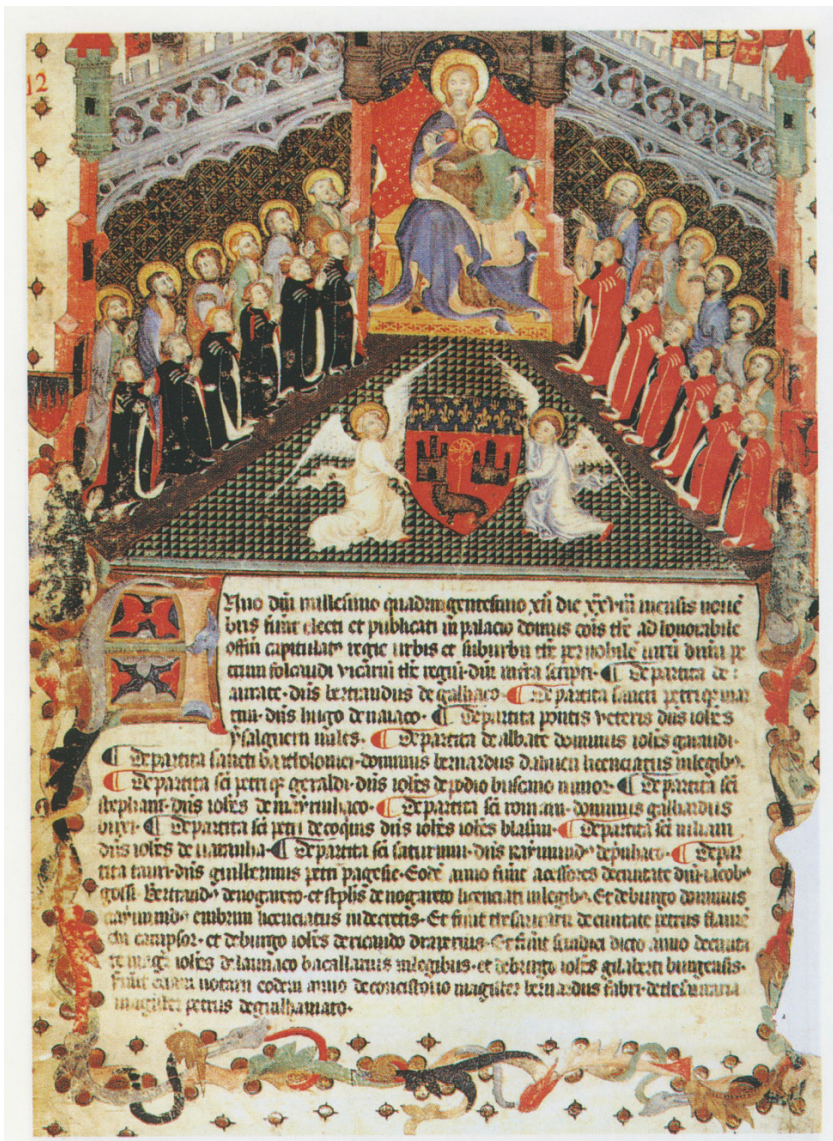 12
Anno dñi millesimo quadringentesimo xii die xxviii mensis nouē
bris fuñt electi et publicati in palacio domus cõis thē ad honorabile
offiñ capitulat9 regie urbis et suburbii thē per nobile uirū dñm pe
trum folcaudi vicariū thē regiū dñi infra scripti · ¶ De partita de
aurate · dñs bertrandus de galhaco · ¶ De partita sancti petri q mar
dñs hugo de · ¶ De partita pontis veteris dñs iohēs
ysalguerii miles · ¶ De partita de albate dominus iohēs garaudi ·
¶ De partita sancti bartholomei · dominus bernardus licenciatus in legib9 ·
¶ De partita sci petri q geraldi · dñs iohēs de podio buscano minor · ¶ De partita sci
stephani · dñs iohēs de · ¶ De partita sci romani · dominus galhardus
· ¶ De partita sci petri de coquis dñs iohēs iohēs blasini · ¶ De partita sci
dñs iohēs de · ¶ De partita sci saturnini · dñs Raymund9 · ¶ De par
tita tauri · dñs guillermus petri pagesie · anno fuñt acessores de ciuitate dñi iacob9
gossi Bertrand9 de nogareto · et stephs de nogareto licenciati in legib9 · Et de burgo dominus
raymund9 embrini licenciatus in decretis · Et fuñt thesaurarii de ciuitate petrus
campsor · et de burgo iohēs de ricaudo draperius · Et fuñt sindici dicto anno de ciuita
te iohēs de launaco bacallarius in legibus · et de burgo iohēs gilaberti burgensis ·
fuñt notarii eodem anno de concistorio magister bernardus fabri · de thesauraria
magister petrus de